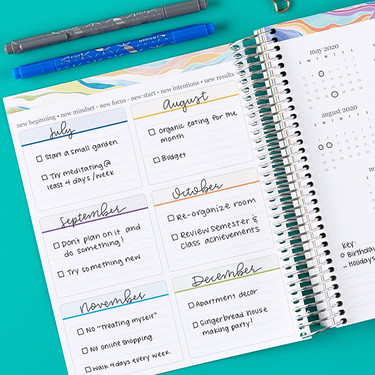 new beginning • new mindset • new focus • new start • new intentions • new results
July
Start a small garden
Try meditating @
least 4 days/week
August
Organic eating for the
month
Budget
September
Don't plan on it, and
do something!
Try something new
October
Re-organize room
Review semester &
class achievements
November
No "treating myself"
No online shopping
Walk 4 days every week
December
Apartment decor
Gingerbread house
making party!
may 2020
august 2020
Key: